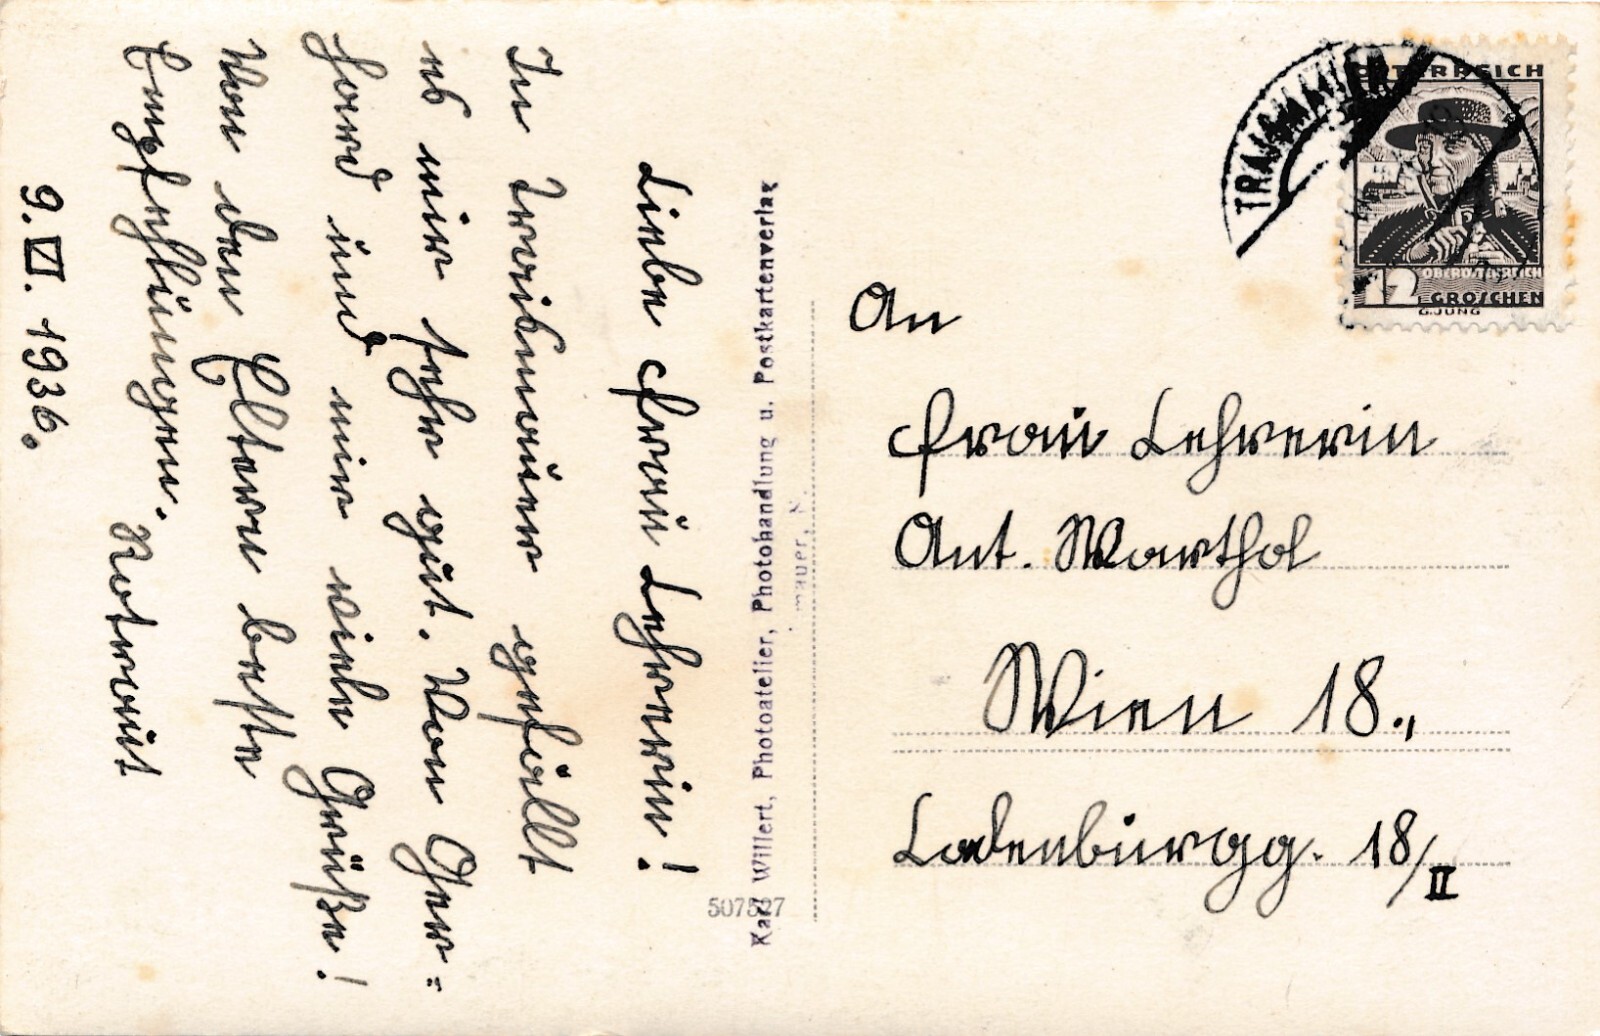 Liebe Frau Lehrerin!
In Traismauer gefällt
es mir sehr gut. Von Ger=
hard und mir viele Grüße!
Von den Eltern beste
Empfehlungen. Rotraut
9. VI. 1936.
Karl Willert, Photoatelier, Photohandlung u. Postkartenverlag
mauer, N.
507527
TRAISMAUER
ÖSTERREICH
12
OBERÖSTERREICH
GROSCHEN
G.JUNG
An
Frau Lehrerin
Ant. Marthol
Wien 18.,
Ladenburgg. 18/II